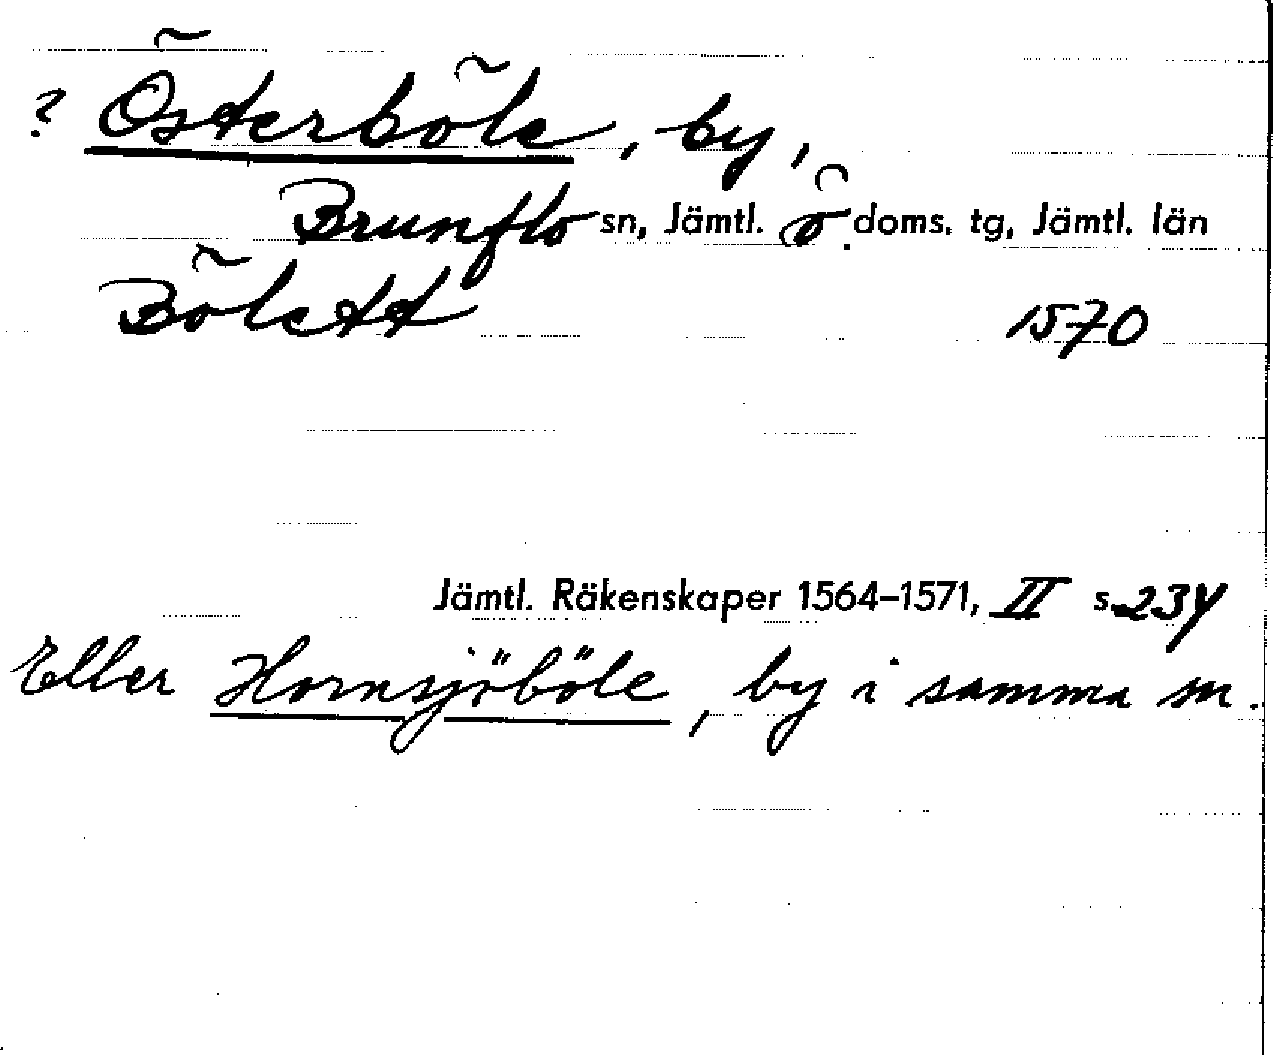 ? Österböle, by,
Brunflo sn, Jämtl. ö. doms. tg, Jämtl. län
Bölett 1570
Jämtl. Räkenskaper 1564–1571, II s. 234
Eller Hornsjöböle, by i samma sn.